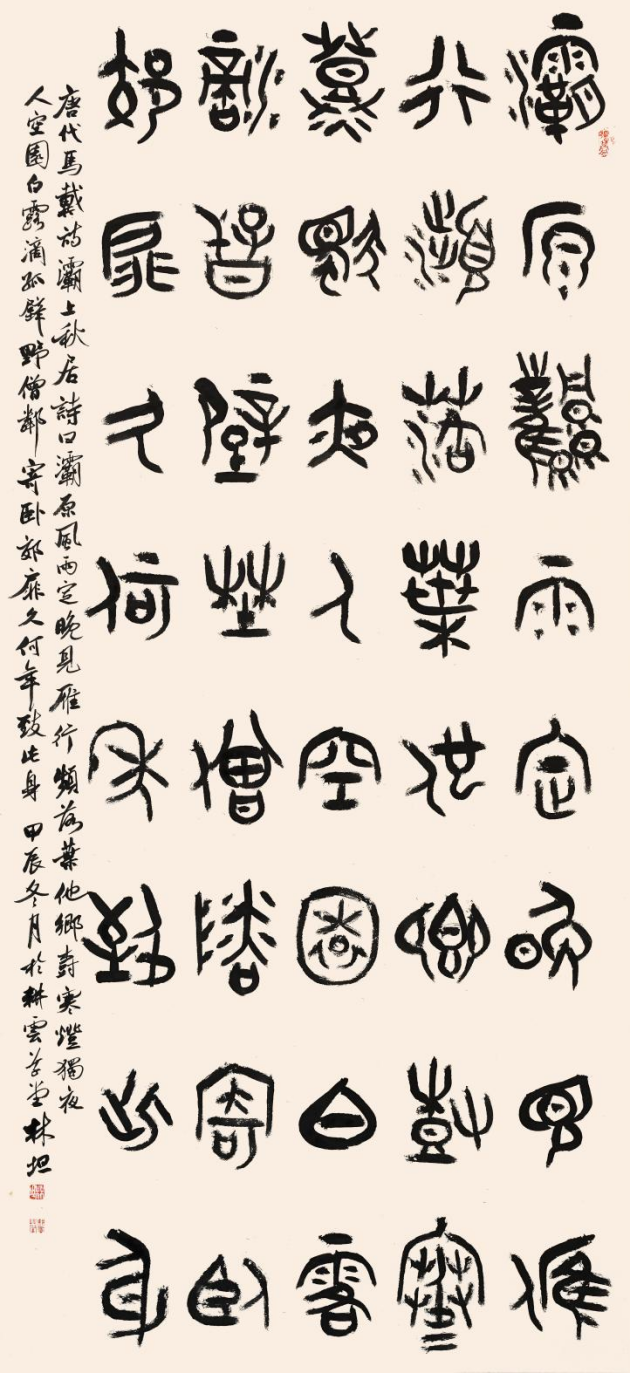 灞原風雨定晚見雁
行頻落葉他鄉樹寒
燈獨夜人空園白露
滴孤壁野僧鄰寄臥
郊扉久何年致此身
唐代馬戴詩灞上秋居詩曰灞原風雨定晚見雁行頻落葉他鄉樹寒燈獨夜
人空園白露滴孤壁野僧鄰寄臥郊扉久何年致此身 甲辰冬月於耕雲草堂林坦